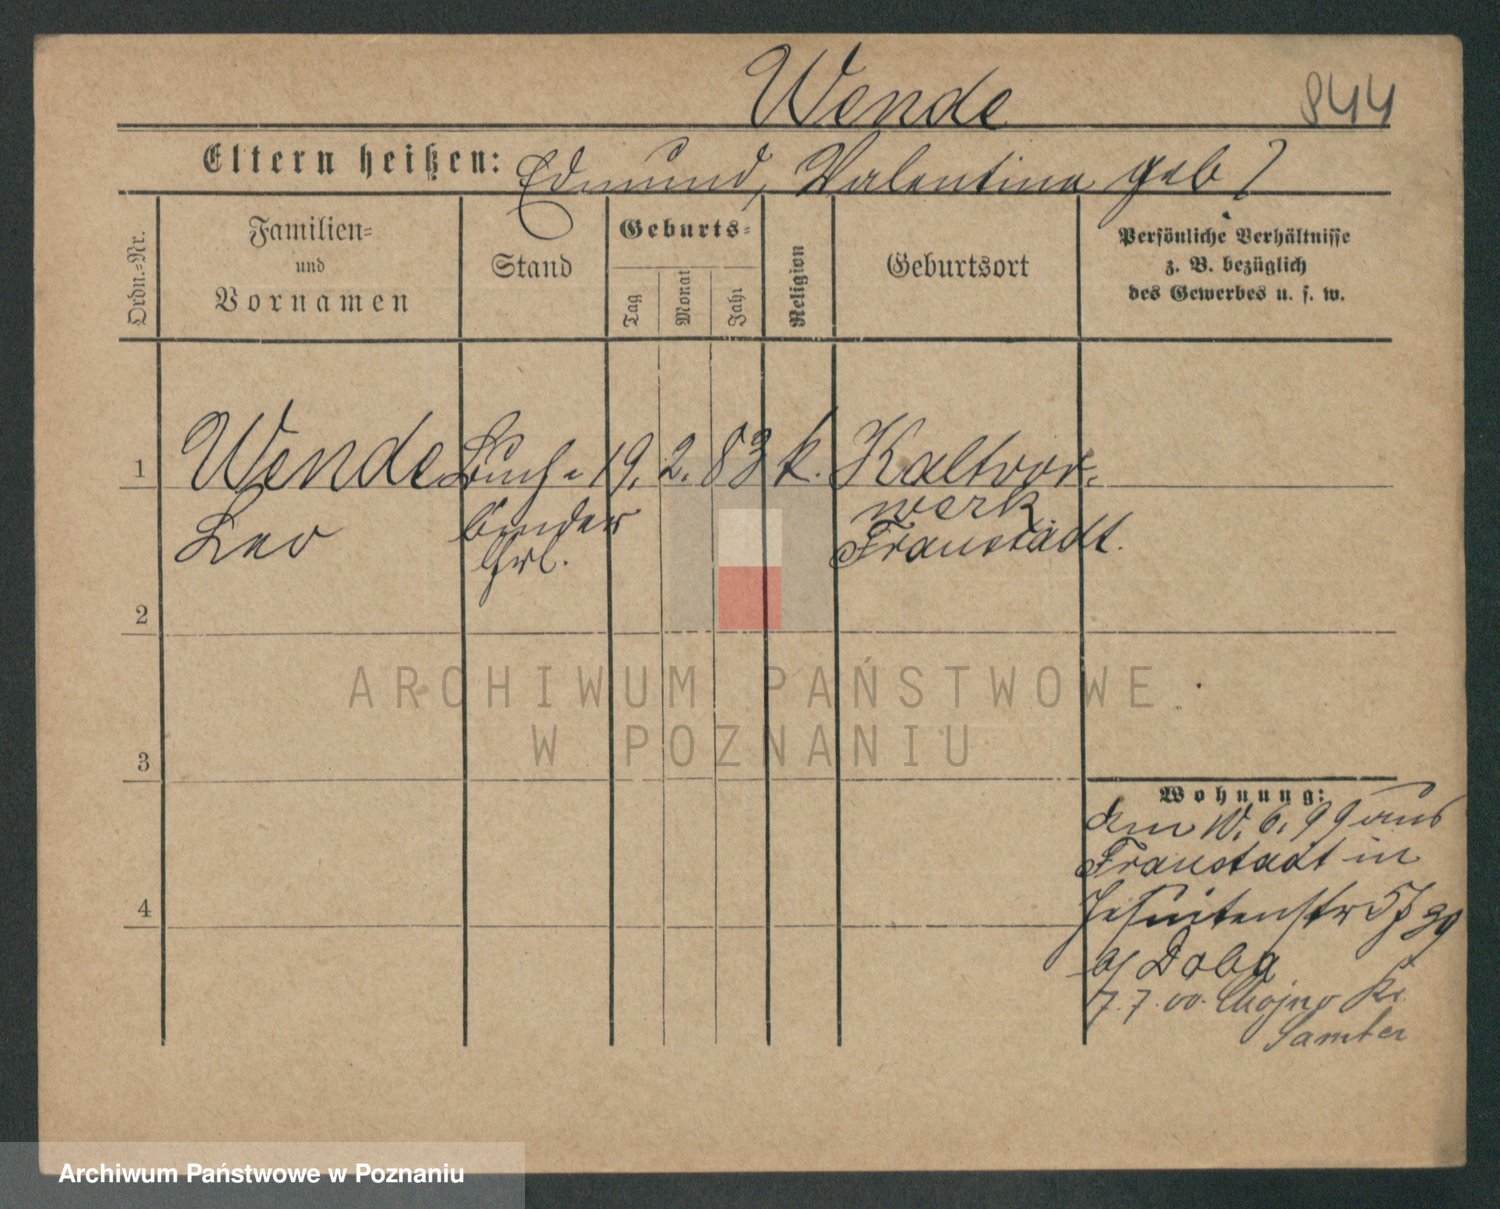 Wende
844
Eltern heißen: Edmund, Valentina geb ?
Ordn.-Nr.
Familien-
und
Vornamen
Stand
Geburts-
Tag
Monat
Jahr
Religion
Geburtsort
Persönliche Verhältnisse
z. B. bezüglich
des Gewerbes u. s. w.
1 Wende Buch- 19. 2. 83 k. Kaltvor-
werk
Leo binder Fraustadt.
lhrl.
2
ARCHIWUM PAŃSTWOWE
W POZNANIU
3
Wohnung:
am 10. 6. 99 aus
Fraustadt in
Jesuitenstr
4
b/ Doba
7. 7. 00. Chojno Kr.
Samter
Archiwum Państwowe w Poznaniu